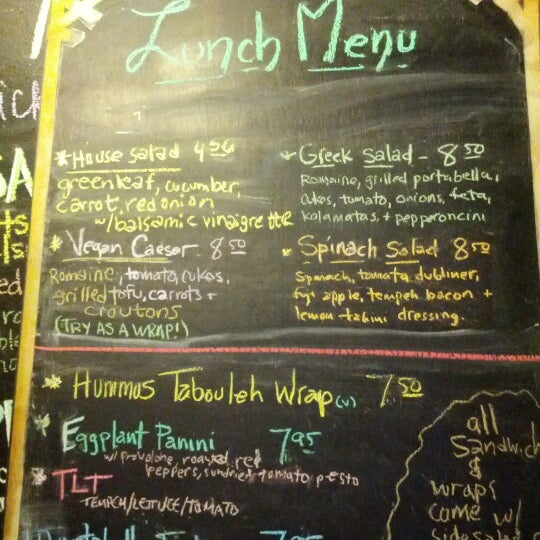 Lunch Menu
* House Salad 4 50
green leaf, cucumber,
carrot, red onion
w/ balsamic vinaigrette
* Vegan Caesar 8 50
Romaine, tomato, cukes,
grilled tofu, carrots +
croutons
(TRY AS A WRAP!)
Greek Salad - 8 50
Romaine, grilled portabella,
cukes, tomato, onions, feta,
kalamatas, + pepperoncini
Spinach Salad 8 50
Spinach, tomato, dubliner,
fuji apple, tempeh bacon +
lemon tahini dressing.
* Hummus Tabouleh Wrap (v) 7 50
Eggplant Panini 7 95
w/ provolone, roasted red
peppers, sundried tomato pesto
* TLT
TEMPEH/LETTUCE/TOMATO
7 95
all
Sandwich
&
wraps
come w/
side salad